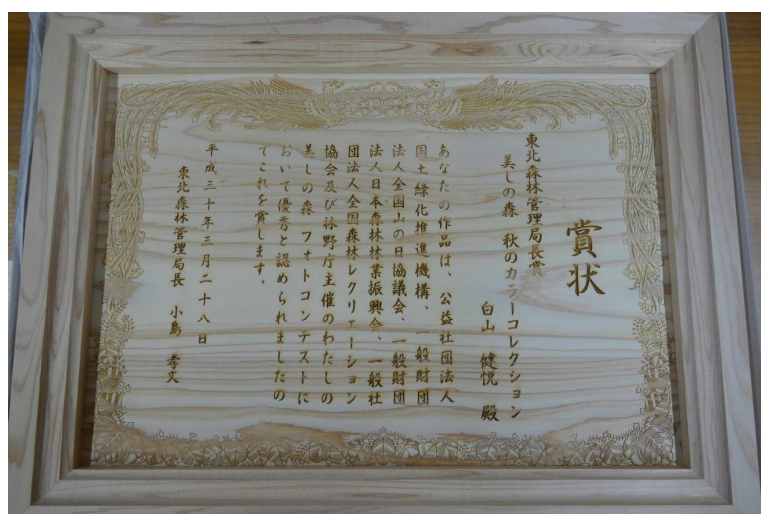 賞状
東北森林管理局長賞
美しの森 秋のカラーコレクション
白山 健悦 殿
あなたの作品は、公益社団法人
国土緑化推進機構、一般財団
法人全国山の日協議会、一般財団
法人日本森林林業振興会、一般社
団法人全国森林レクリエーション
協会及び林野庁主催のわたしの
美しの森 フォトコンテストに
おいて優秀と認められましたの
でこれを賞します。
平成三十年三月二十八日
東北森林管理局長 小島 孝文